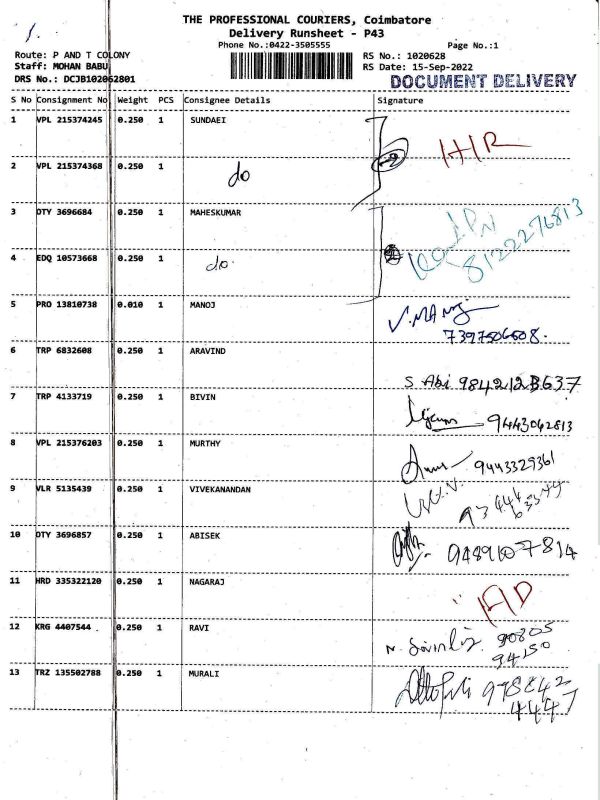 THE PROFESSIONAL COURIERS, Coimbatore
Delivery Runsheet - P43
Phone No.:0422-3505555
Page No.:1
Route: P AND T COLONY
Staff: MOHAN BABU
DRS No.: DCJB102062801
RS No.: 1020628
RS Date: 15-Sep-2022
DOCUMENT DELIVERY
S No Consignment No Weight PCS Consignee Details Signature
1 VPL 215374245 0.250 1 SUNDAEI
2 VPL 215374368 0.250 1 do
3 DTY 3696684 0.250 1 MAHESKUMAR 8122276813
4 EDQ 10573668 0.250 1 do
5 PRO 13810738 0.010 1 MANOJ
7397506608.
6 TRP 6832608 0.250 1 ARAVIND
S Abi
7 TRP 4133719 0.250 1 BIVIN 9443042813
8 VPL 215376203 0.250 1 MURTHY 9443329361
9 VLR 5135439 0.250 1 VIVEKANANDAN
10 DTY 3696857 0.250 1 ABISEK 9489107814
11 HRD 335322120 0.250 1 NAGARAJ
12 KRG 4407544 0.250 1 RAVI 90805
94150
13 TRZ 135502788 0.250 1 MURALI 978842
4447